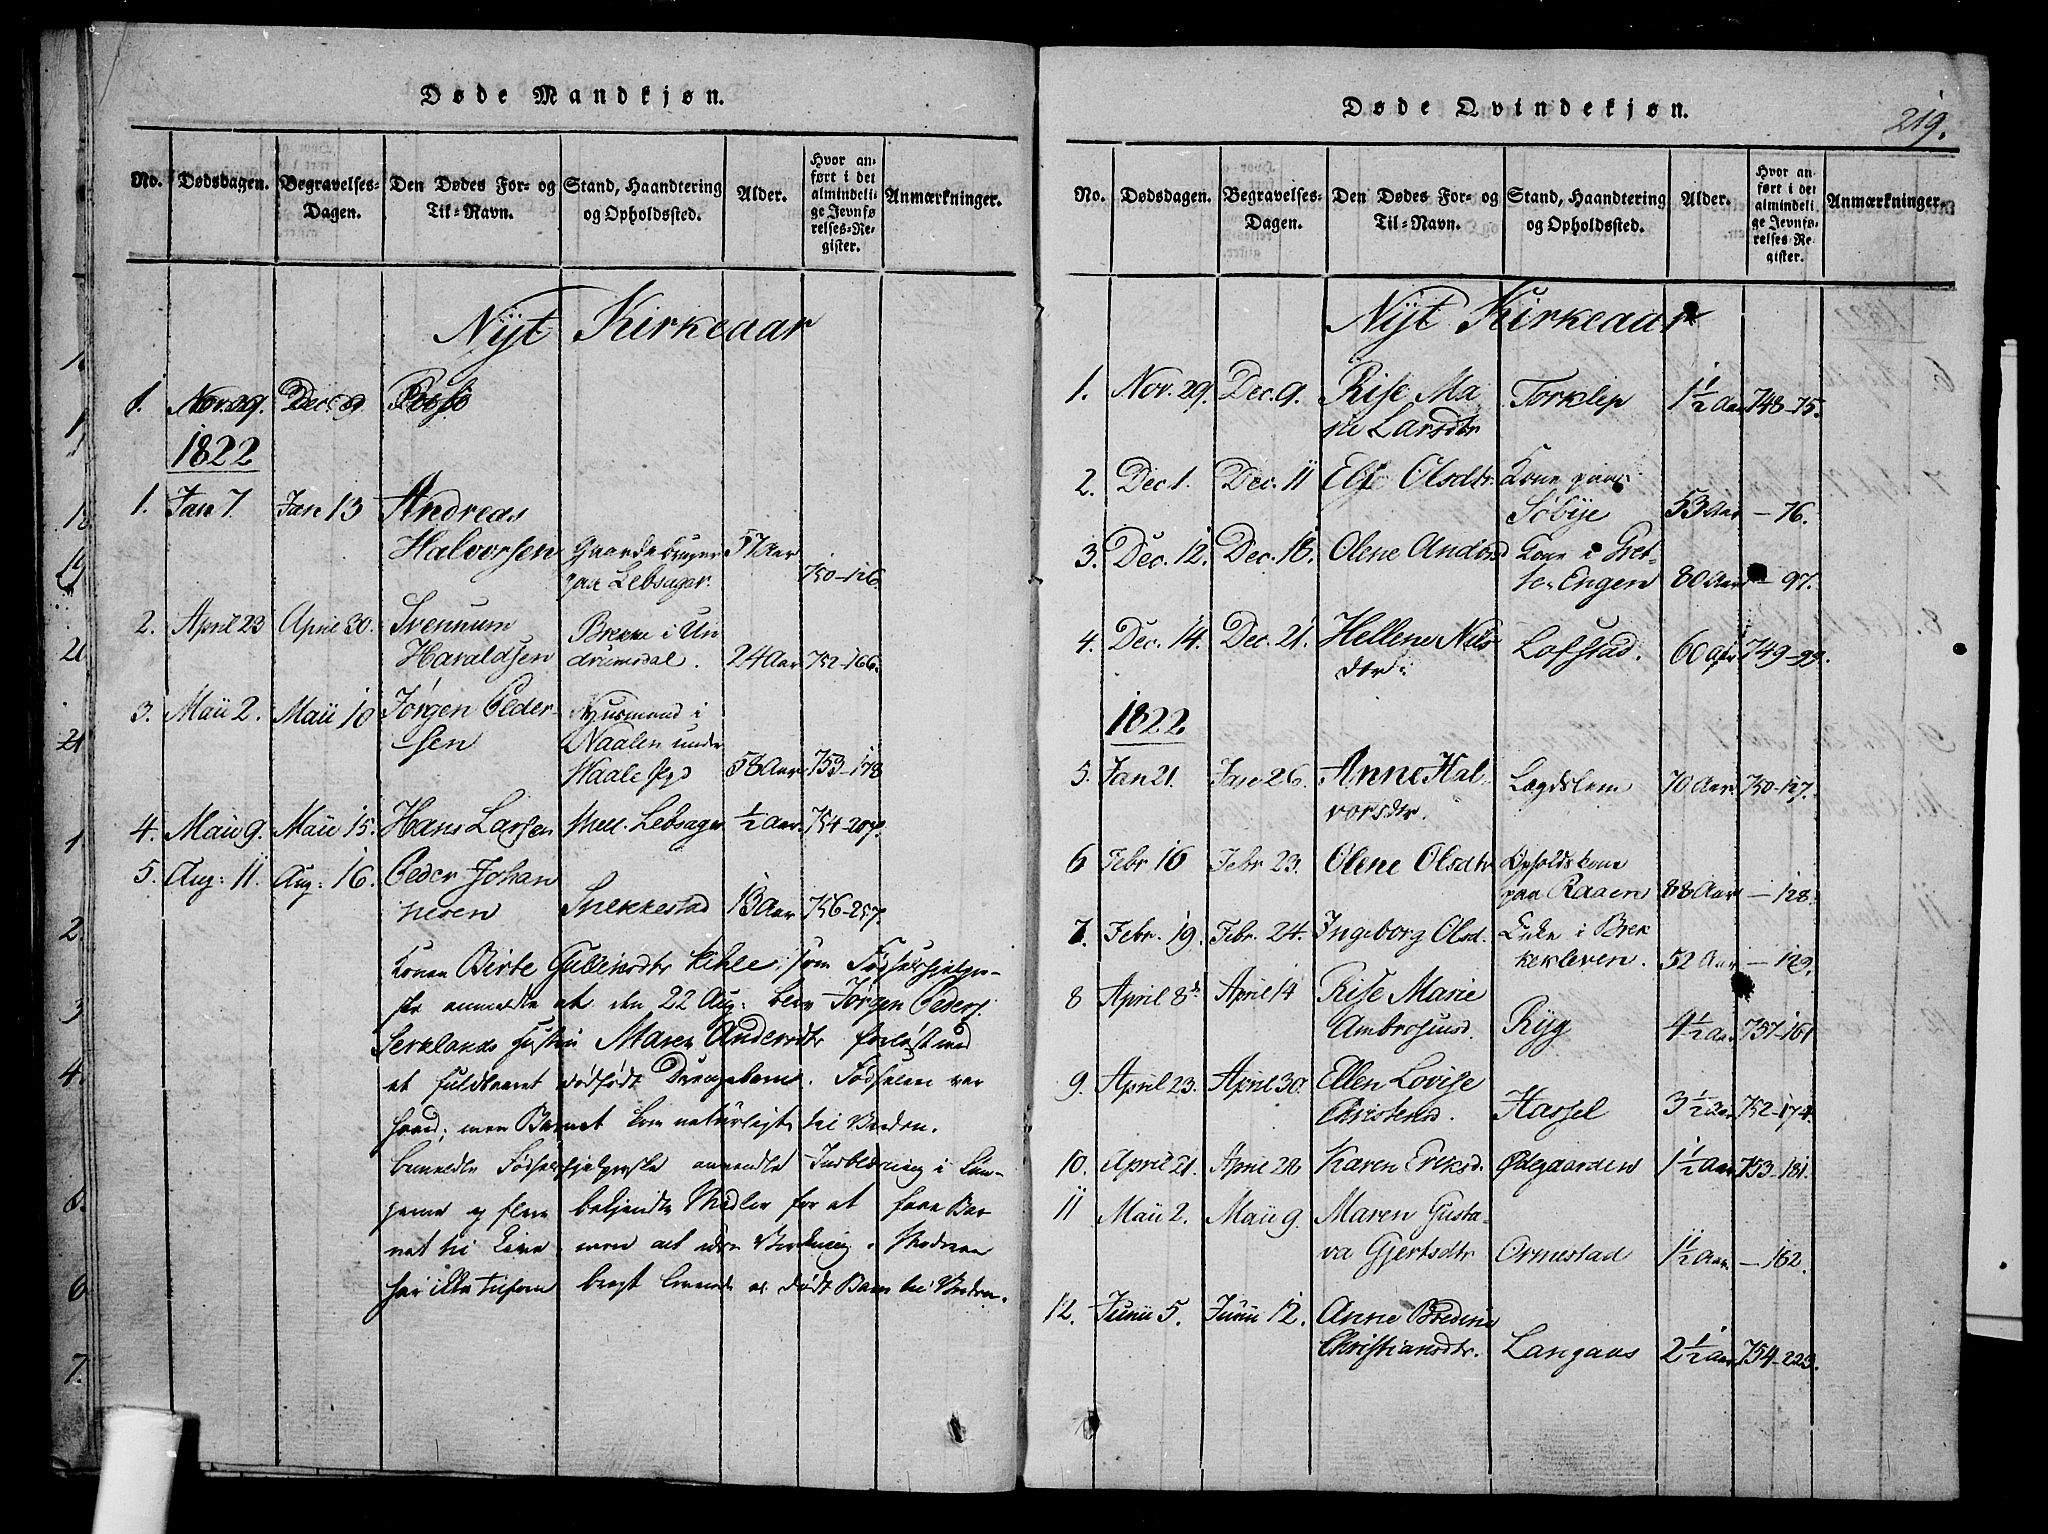 Døde Mandkjøn.
No.
Dødsdagen.
Begravelses-
Dagen.
Den Dødes For- og
Til-Navn.
Stand, Haandtering
og Opholdssted.
Alder.
Hvor an-
ført i det
almindeli-
ge Jevnfø
relses-Re-
gister.
Anmærkninger.
Nÿt Kirkeaar
1. Nov. 29. Dec. 9
1822
1. Jan 7. Jan 13 Andreas
Halvorsen Gaardbruger 57 Aar
paa Lebsager. 750-126
2. April 23 April 30. Svennum
Haraldsen Brekke i Un
drumsdal. 24 Aar 752-166.
3. Maii 2. Maii 10 Jørgen Peder-
sen Huusmand i
Naalen under
58 Aar 753-178
4. Maii 9. Maii 15. Hans Larsen Mell. Lebsager ½ Aar. 754-207.
5. Aug: 11. Aug: 16. Peder Johan
nesen Snekkestad 13 Aar 756-257.
Konen Birte som Fødselshjelper-
ske anmeldte at den 22 Aug: blev Jørgen Peders.
Maren forløst med
et fuldbaaret dødfødt Drengebarn. Fødselen var
haard; men Barnet kom naturligt til Verden.
bemeldte Fødselshjelperske anvendte Indblæsning i Lun-
gerne og flere betjenlte Midler for at faae Bar
net til Live men alt uden Virkning. Moderen
har ikke tilforn bragt levende el. dødt Barn til Verden.
Døde Qvindekjøn.
219.
No.
Dødsdagen.
Begravelses-
Dagen.
Den Dødes For- og
Til-Navn.
Stand, Haandtering
og Opholdssted.
Alder.
Hvor an
ført i det
almindeli
ge Jevnfø-
relses Re
gister.
Anmærkninger.
Nÿt Kirkeaar
1. Nov. 29. Dec. 9. Rise Ma
ria Larsdtr Torklep 1½ Aar 748-75.
2. Dec. 1. Dec. 11 Else Olsdtr. Kone paa
Søbÿe 53 Aar - 76.
3. Dec. 12. Dec. 18. Olene Anders Kone i Gret-
te-Engen 80 Aar - 97.
4. Dec. 14. Dec. 21. Hellene Niels
dtr: Lofstad. 60 Aar 749-99.
1822
5. Jan 21. Jan 26. Anne Hal-
vorsdtr. Lægdslem 70 Aar 750-127.
6 Febr 16 Febr 23. Olene Olsdtr Opholdskone
paa Raaen 88 Aar - 128.
7. Febr. 19. Febr. 24. Ingeborg Olsd. Enke i Brek
kekleven. 52 Aar - 129.
8 April 8d April 14 Rise Marie
Ambrosiusd. Rÿg 4½ Aar 751-161
9. April 23. April 30. Ellen Lovise
Christensd. Hassel 3½ Aar 752-174.
10. April 21. April 28 Karen Eriksd. Ødegaarden 1½ Aar 753-181.
11 Maii 2. Maii 9. Maren Gusta-
va Gjertsdtr Ormestad 1½ Aar. - 182.
12. Junii 5. Junii 12. Anne Bredine
Christiansdtr. Langaas 2½ Aar 754-223.